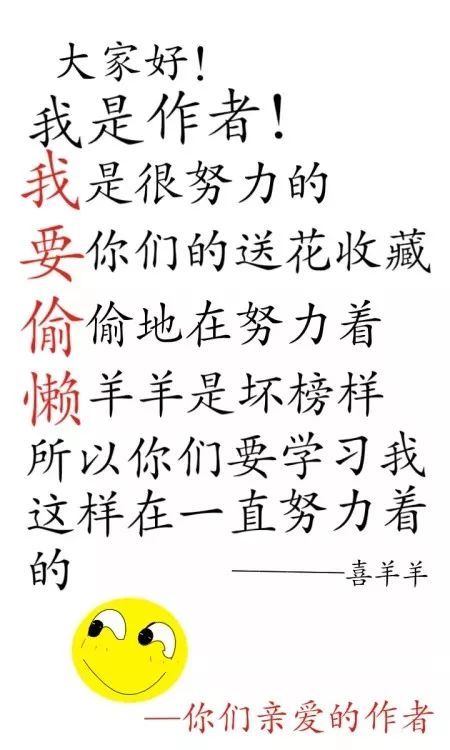 大家好！
我是作者！
我是很努力的
要你们的送花收藏
偷偷地在努力着
懒羊羊是坏榜样
所以你们要学习我
这样在一直努力着
的
——喜羊羊
—你们亲爱的作者